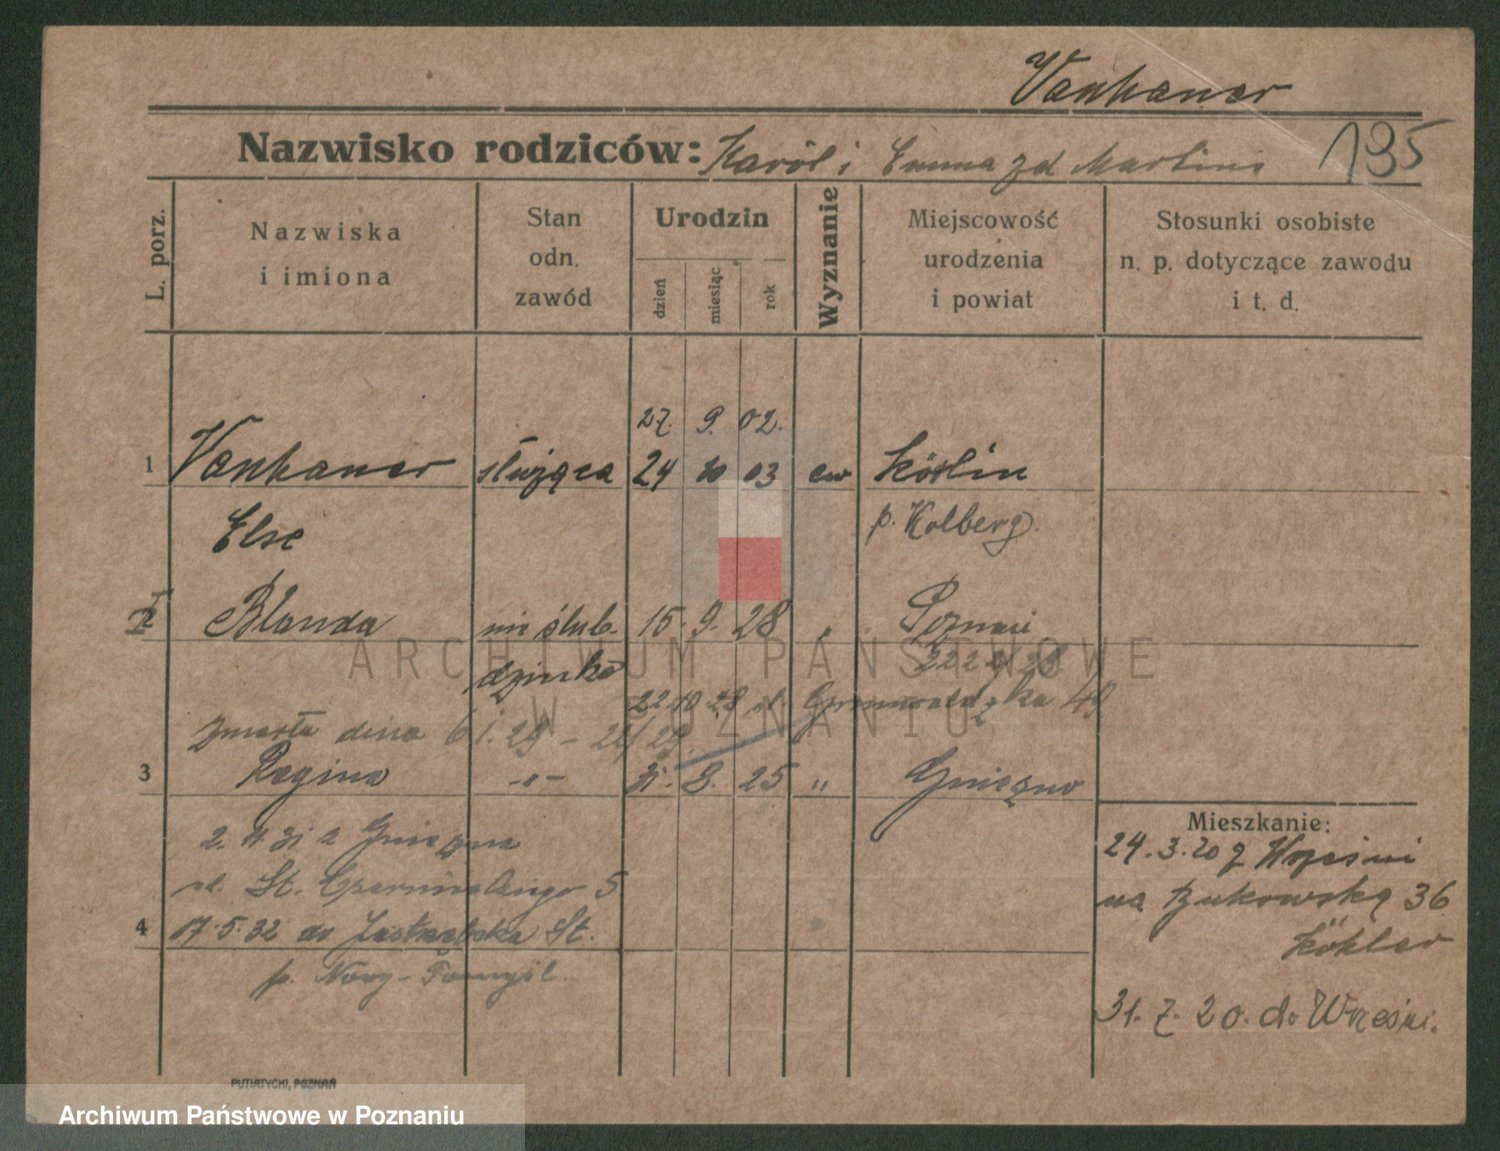 Vanhauer
Nazwisko rodziców: Karól i Emma zd Martins 195
L. porz.
Nazwiska
i imiona
Stan
odn.
zawód
Urodzin
dzień
miesiąc
rok
Wyznanie
Miejscowość
urodzenia
i powiat
Stosunki osobiste
n. p. dotyczące zawodu
i t. d.
27. 9. 02.
1 Vanhauer służąca 24 10 03 ew Körlin
Else p. Kolberg.
2 Blanda nie ślub. 15. 9. 28 „ Poznań
dziecko
22 10 28 ul. Grunwaldzka
zmarła dnia 6 1. 29
3 Regina -„- 31. 8. 25 „ Gniezno
2. 31 z Gniezna
ul. St. 5
4 17. 5. 32 do Jastrzębska St.
p. Nowy-Tomyśl.
Mieszkanie:
24. 3. 20 z Wrześni
na Bukowską 36
Köhler
31. 7. 20. do Wrześni.
PUTIATYCKI, POZNAŃ
ARCHIWUM PAŃSTWOWE
W POZNANIU
Archiwum Państwowe w Poznaniu